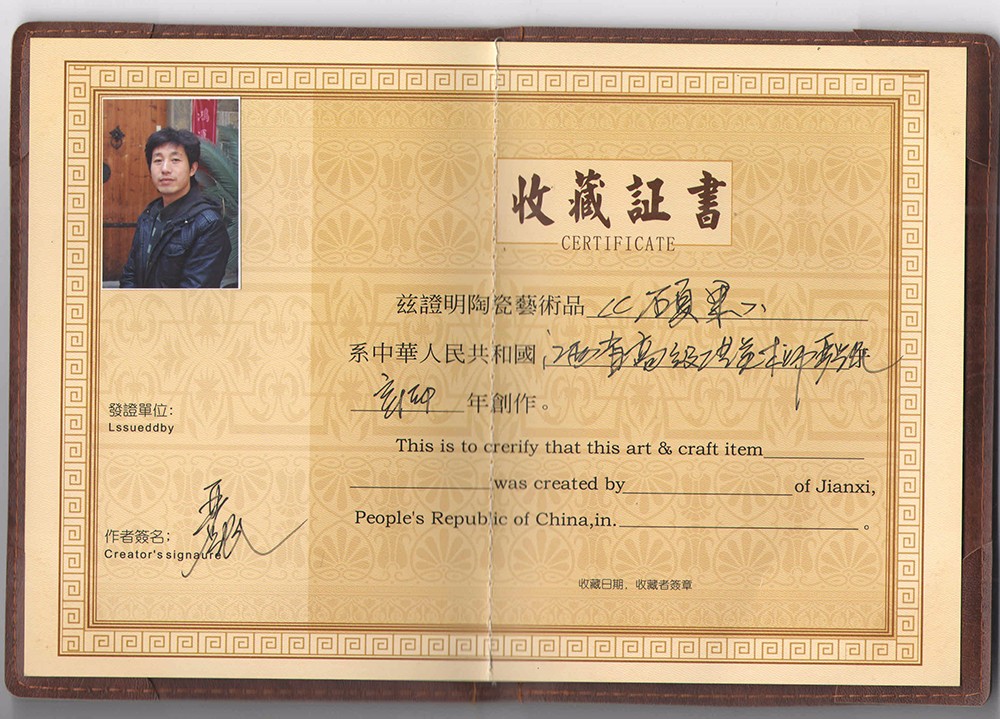 鴻
收藏証書
CERTIFICATE
兹證明陶瓷藝術品《碩果》
系中華人民共和國江西省高級工藝美术师
年創作。
This is to crerify that this art & craft item
was created by of Jianxi,
People's Republic of China,in. 。
發證單位:
Lssueddby
作者簽名;
Creator's signaure
收藏日期,收藏者簽章